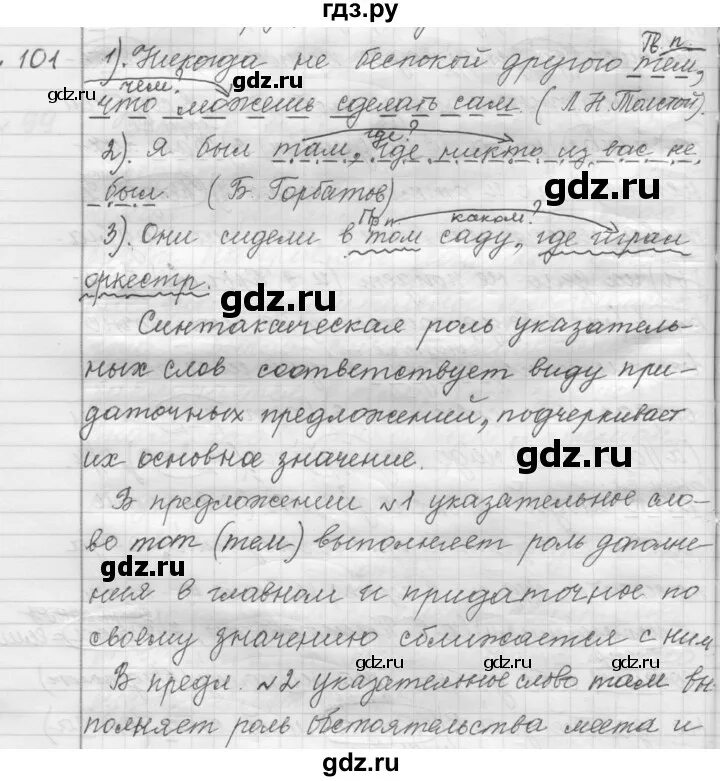 гдз.ру
101 1). Никогда не беспокой другого тем,
Пв. п.
чем?
что можешь сделать сам. (Л.Н. Толстой).
где?
2). Я был там, где никто из вас не
был (Б. Горбатов)
Пв. п. каком?
3). Они сидели в том саду, где играл
оркестр.
Синтаксическая роль указатель-
ных слов соответствует виду при-
даточных предложений, подчеркивает
их основное значение.
В предложении №1 указательное сло-
во тот (тем) выполняет роль дополне-
ния в главном и придаточное по
своему значению сближается с ним
В предл. №2 указательное слово там вы
полняет роль обстоятельства места и
gdz.ru
gdz.ru
gdz.ru
gdz.ru
gdz.ru
gdz.ru
gdz.ru
gdz.ru
gdz.ru
gdz.ru
gdz.ru
gdz.ru